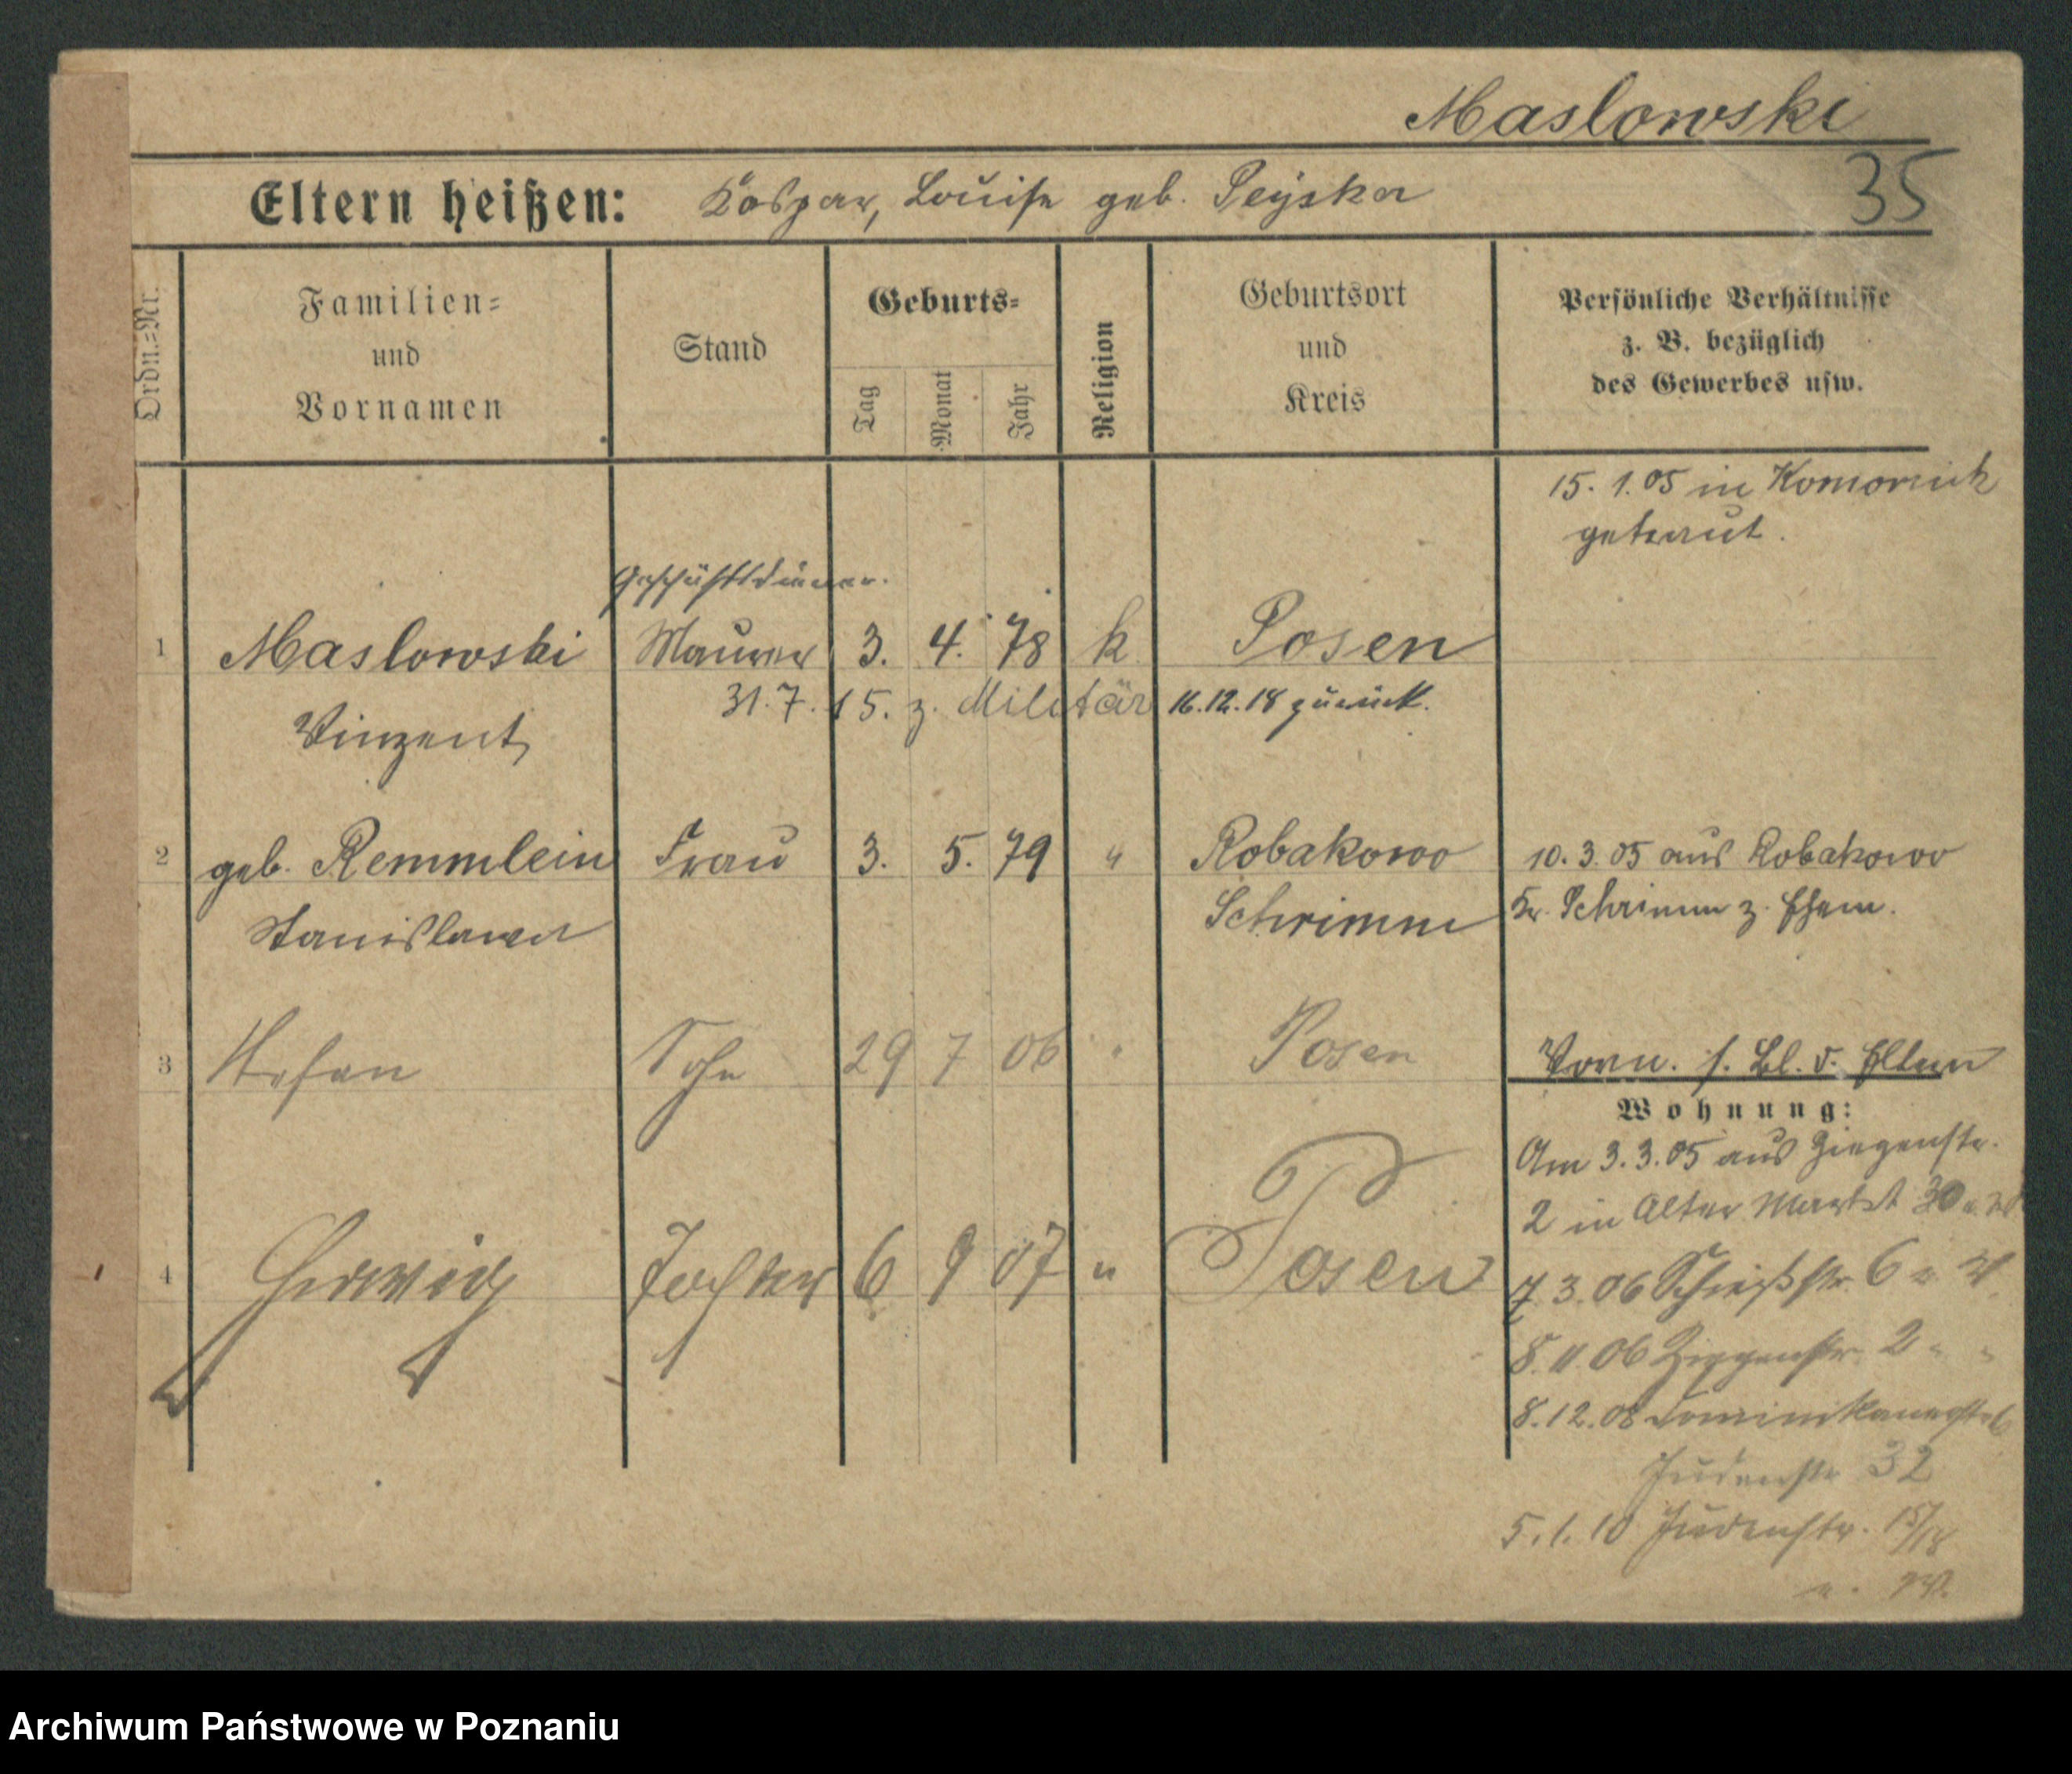 Maslowski
35
Eltern heißen: Kaspar, Louise geb. Peyska
Ordn.=Nr.
Familien=
und
Vornamen
Stand
Geburts=
Tag
Monat
Jahr
Religion
Geburtsort
und
Kreis
Persönliche Verhältnisse
z. B. bezüglich
des Gewerbes usw.
15. 1. 05 in Komornik
getraut.
Geschäftsdiener.
1 Maslowski Maurer 3. 4. 78 k Posen
31.7.15. z. Militär 16.12.18 zurück.
Vinzent
2 geb. Remmlein Frau 3. 5. 79 " Robakowo 10. 3. 05 aus Robakowo
Stanislawa Schrimm Kr. Schrimm z. Ehem.
3 Stefan Sohn 29 7 06 " Posen Vorn. s. Bl. d. Eltern
Wohnung:
Am 3.3.05 aus Ziegenstr.
2 in Alter Markt 30
4 Hedwig Tochter 6 9 07 " Posen
7. 3. 06 Schießstr. 6
8. 11. 06 Ziegenstr. 2 " "
8. 12. 08 Dominikanerstr 6
Judenstr 32
5. 1. 10 Judenstr. 15/18
Archiwum Państwowe w Poznaniu